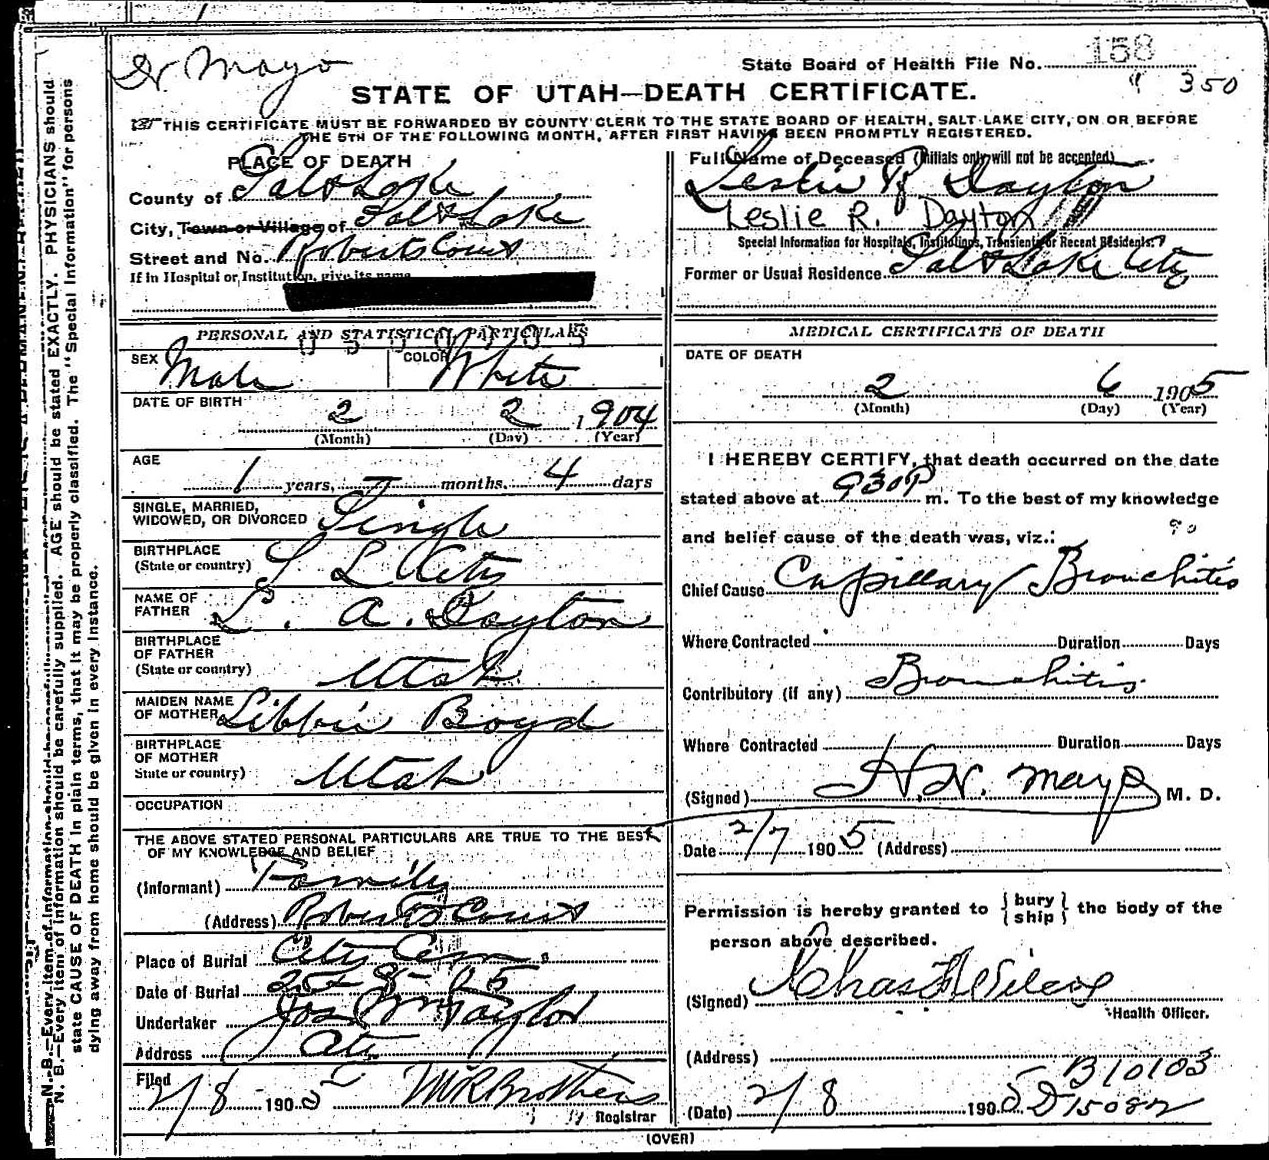 Dr Mayo
State Board of Health File No. 158
350
STATE OF UTAH—DEATH CERTIFICATE.
THIS CERTIFICATE MUST BE FORWARDED BY COUNTY CLERK TO THE STATE BOARD OF HEALTH, SALT LAKE CITY, ON OR BEFORE
THE 5TH OF THE FOLLOWING MONTH, AFTER FIRST HAVING BEEN PROMPTLY REGISTERED.
PLACE OF DEATH
County of Salt Lake
City, Town or Village of Salt Lake
Street and No. Roberts Court
If in Hospital or Institution, give its name
Full Name of Deceased (Initials only will not be accepted)
Leslie R Dayton
Leslie R. Dayton
Special Information for Hospitals, Institutions, Transients or Recent Residents.
Former or Usual Residence Salt Lake City
PERSONAL AND STATISTICAL PARTICULARS
SEX Male COLOR White
DATE OF BIRTH
2 2 1904
(Month) (Day) (Year)
AGE
1 years, - months, 4 days
SINGLE, MARRIED,
WIDOWED, OR DIVORCED Single
BIRTHPLACE
(State or country) S L City
NAME OF
FATHER L. A. Dayton
BIRTHPLACE
OF FATHER
(State or country) Utah
MAIDEN NAME
OF MOTHER Libbie Boyd
BIRTHPLACE
OF MOTHER
State or country) Utah
OCCUPATION
THE ABOVE STATED PERSONAL PARTICULARS ARE TRUE TO THE BEST
OF MY KNOWLEDGE AND BELIEF
(Informant) Family
(Address) Roberts Court
Place of Burial City Cem.
Date of Burial 2-8-05
Undertaker Jos Wm Taylor
Address City
Filed 2/8 1905
Registrar
MEDICAL CERTIFICATE OF DEATH
DATE OF DEATH
2 6 1905
(Month) (Day) (Year)
I HEREBY CERTIFY, that death occurred on the date
stated above at 930P m. To the best of my knowledge
and belief cause of the death was, viz.:
90
Chief Cause Capillary Bronchitis
Where Contracted Duration Days
Contributory (if any) Bronchitis
Where Contracted Duration Days
(Signed) H.N. Mayo M. D.
Date 2/7 1905 (Address)
Permission is hereby granted to {bury ship} the body of the
person above described.
(Signed) Chas F Wilcox
Health Officer.
(Address)
B10103
(Date) 2/8 1905 D15082
(OVER)
N. B.—Every item of information should be carefully supplied. AGE should be stated EXACTLY. PHYSICIANS should
state CAUSE OF DEATH in plain terms, that it may be properly classified. The "Special Information" for persons
dying away from home should be given in every instance.